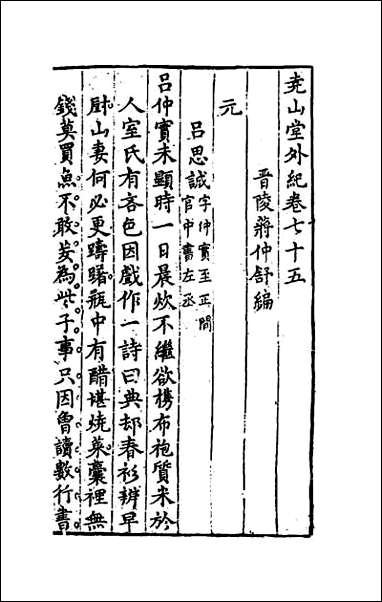 尭山堂外紀卷七十五
晋陵蔣仲舒編
元
呂思誠字仲實至正間
官中書左丞
呂仲實未顯時一日晨炊不繼欲携布袍質米於
人室氏有吝色因戲作一詩曰典却春衫辨早
厨山妻何必更躊躇瓶中有醋堪燒菜囊裡無
錢莫買魚不敢妄為些子事只因曾讀數行書